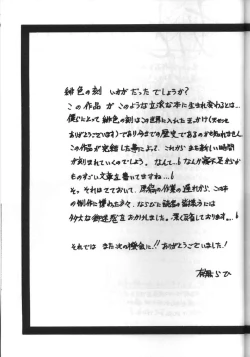 緋色の刻 いかがだったでしょうか?
この作品が このような立派な本に生まれ変わるとは…
僕にとって緋色の刻はこの世界に入れた王かけ(天セツ
ありがとうございます)であり今までの歴史であるのかも知れません
この作品が完結した事によって、これから また新しい時間
が刻まれていくのでしょう。なんて…6 なんか寝不足からか
ものすごい文章を書いてますね…6
そ、それはさておいて、原稿の作業の遅れから、この本
の制作に携わった方々、ならびに読者の皆様方には
多大な御迷惑をおかけしました。深く反省しております…6
それでは また次の機会に!! ありがとうございました!